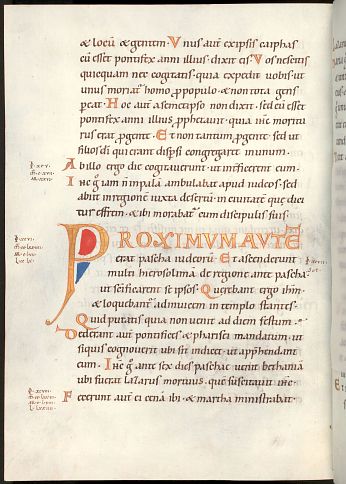 & locũ & gentem. Vnus aut̃ ex ipsis caiphas
cũ esset pontifex anni illius. dixit eis. Vos nescitis
quicquam nec cogitatis. quia expedit uobis. ut
unus moriat̃ homo p populo. & non tota gens
pereat. Hoc aut̃ a semetipso non dixit. sed cũ esset
pontifex anni illius. prophetauit. quia ihc moritu
rus erat p gente. Et non tantum p gente. sed ut
filios dĩ qui erant dispsi congregaret in unum.
Ab illo ergo die cogitauerunt. ut int̃ficerent eum.
Ihc g̃ iam ñ in palam ambulabat apud iudeos. sed
abiit in regione iuxta desertũ in ciuitatẽ que dici
tur effrem. & ibi morabat̃ cum discipulis suis.
PROXIMVM AVTẼ
erat pascha iudeorũ. Et ascenderunt
multi hierosolima de regione ante pascha.
ut scificarent se ipsos. Querebant ergo ihm.
& loquebant̃ ad inuicem in templo stantes.
Quid putatis quia non uenit ad diem festum.
Dederant aut̃ pontifices & pharisei mandatum. ut
siquis cognouerit ubi sit indicet. ut app̃hendant
eum. Ihc g̃ ante sex dies paschae uenit bethaniã
ubi fuerat lazarus mortuus. quẽ suscitauit ihc.
Fecerunt aut̃ ei cenã ibi. & martha ministrabat.